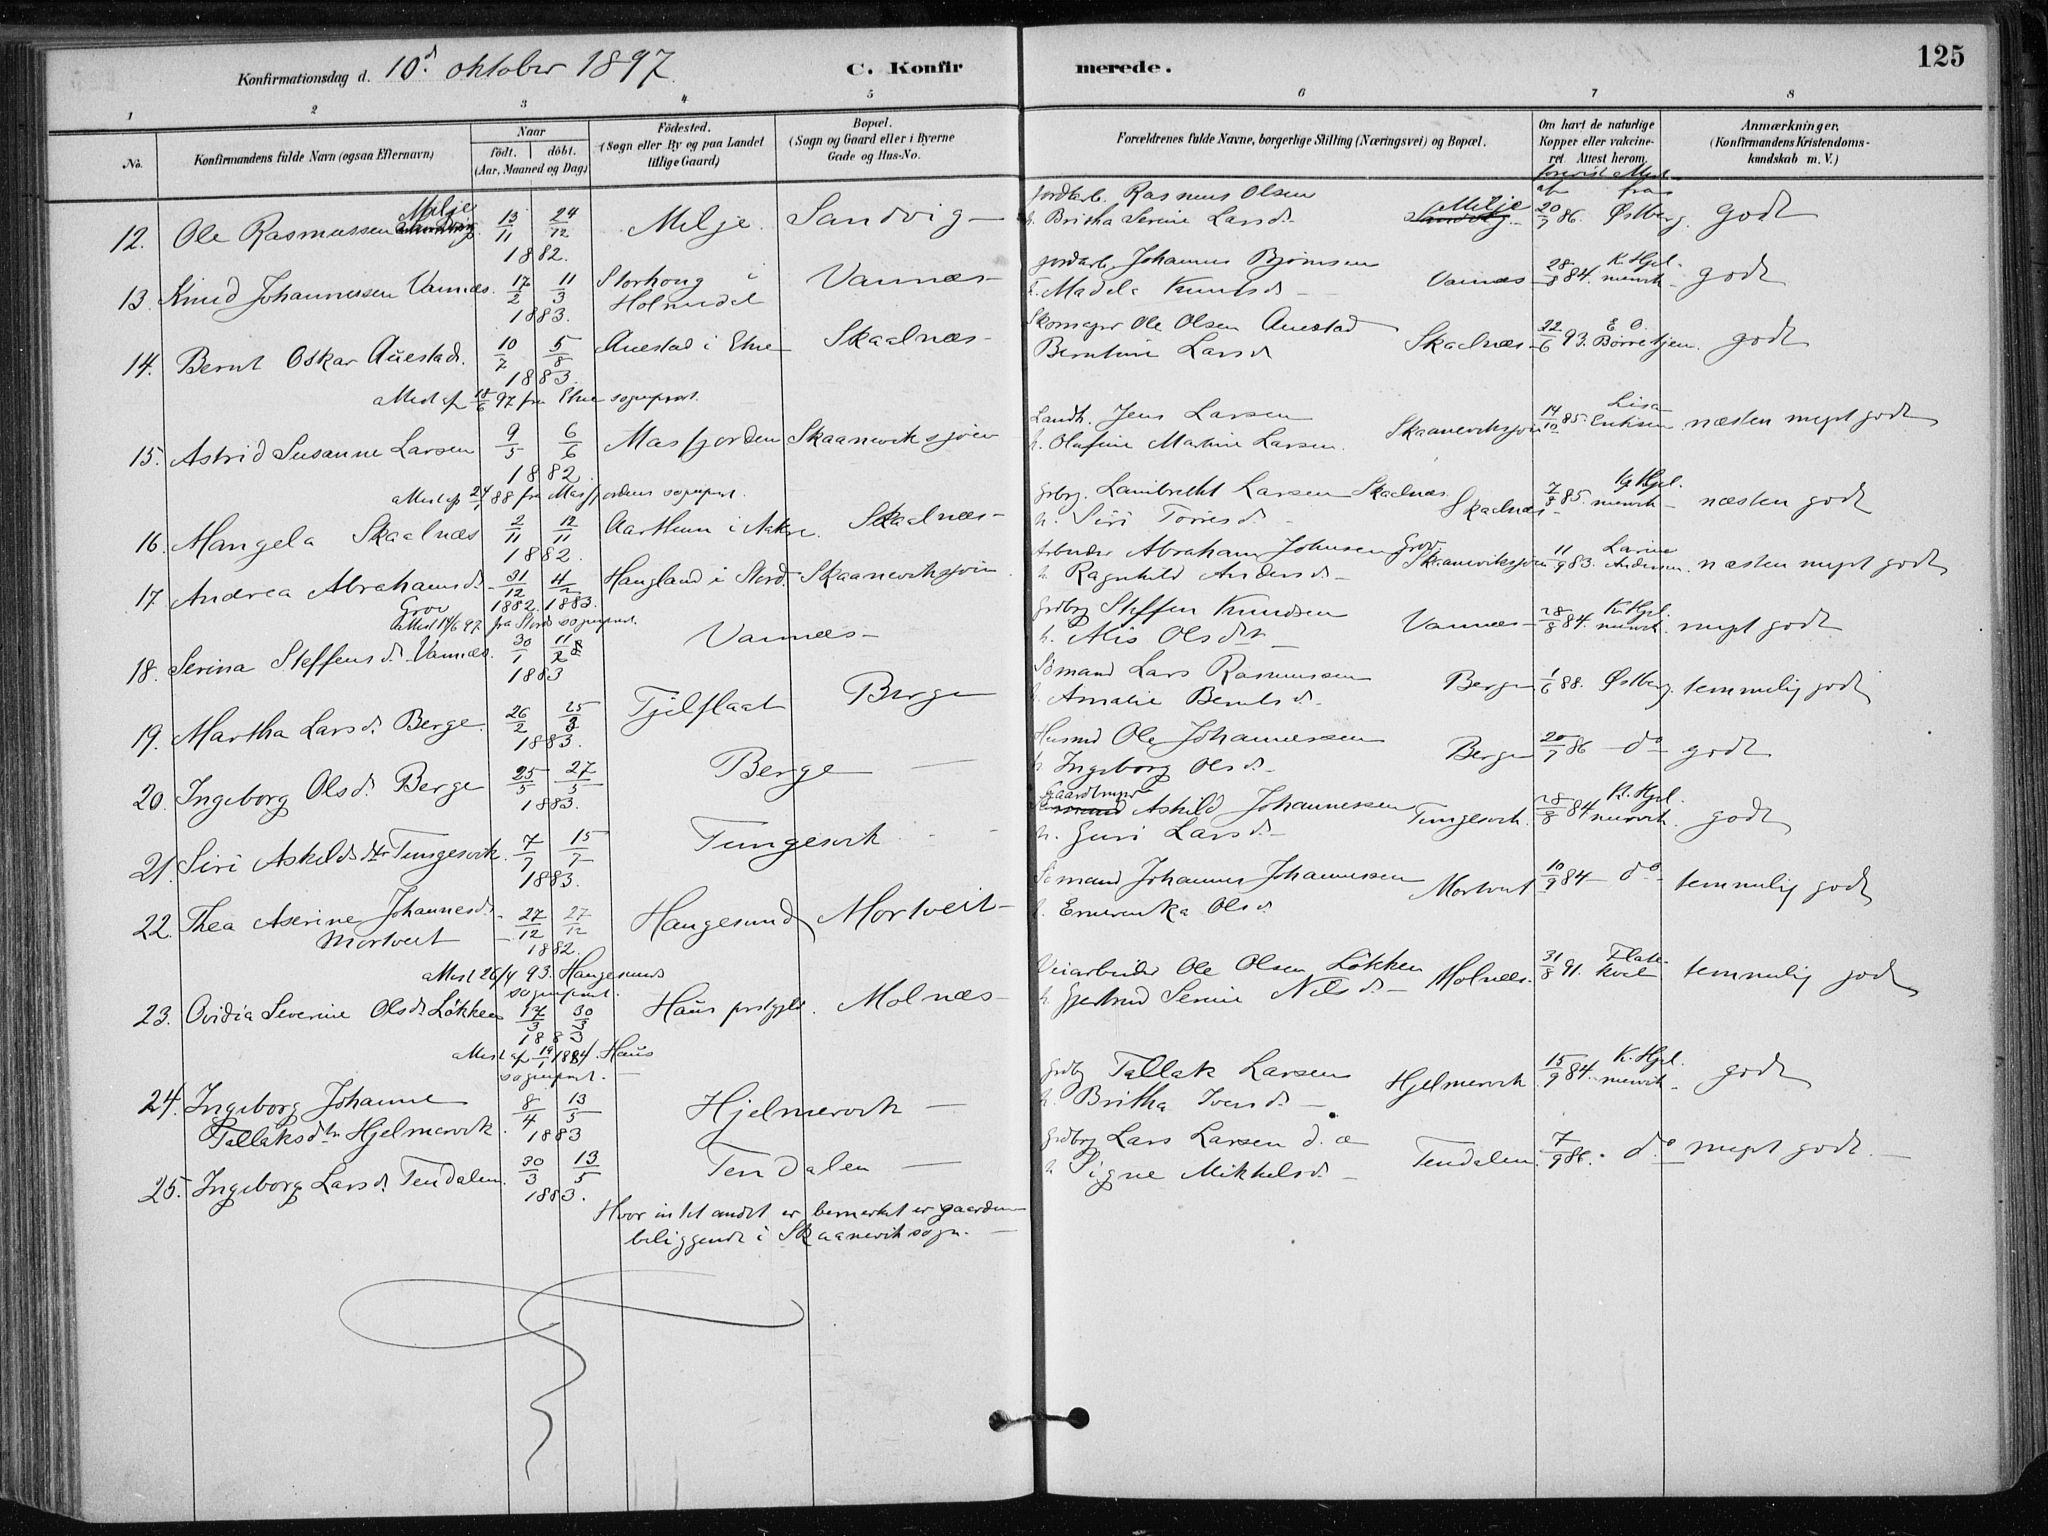 Konfirmationsdag d. 10d. oktober 1897. C. Konfirmerede. 125
1 2 3 4 5 6 7 8
No. Konfirmandens fulde Navn (ogsaa Efternavn) Naar födt. döbt. (Aar, Maaned og Dag) Födested. (Sogn eller By og paa Landet tillige Gaard) Bopæl. (Sogn og Gaard eller i Byerne Gade og Hus-No. Forældrenes fulde Navne, borgerlige Stilling (Næringsvei) og Bopæl. Om havt de naturlige Kopper eller vaccineret. Attest herom. Anmærkninger. (Konfirmandens Kristendomskundskab m. V.)
12. Ole Rasmussen Milje 13/11 24/12 1882. Milje. Sandvig — Rasmus Olsen
h. Britha Serine Larsd. Milje 20/7 86. Østberg. godt
13. Knud Johannessen Vannæs. 17/2 11/3 1883. Storhoug i Holmedal Vannæs — Johannes Bjørnsen
h. Madela Knutsd. — Vannæs — 28/8 84. K. Hjelmervik godt
14. Bernt Oskar Auestad. 10/7 5/8 1883. Auestad i Etne Skaalnæs — Skomager Ole Olsen Auestad
Berntine Larsd. Skaalnæs — 22/6 93. E. O. Børretzen. godt
aMest af 18/6 97 fra Etne sogneprest.
15. Astrid Susanne Larsen 9/5 6/6 1882. Masfjorden Skaaneviksjøen Landh. Jens Larsen
h. Olufine Marine Larsen. Skaaneviksjøen 14/10 85. Lisa Eriksen. næsten meget godt
aMest af 24/1 88 fra Masfjordens sogneprest.
16. Mangela Skaalnæs 2/11 12/11 1882. Aarthun i Aakre. Skaalnæs — Grbrg. Lambrecht Larsen Skaalnæs.
h. Siri Torresd. — Skaalnæs — 7/8 85. Kg Hjelmervik — næsten godt
17. Andrea Abrahamsd. Grov 31/12 1882. 4/2 1883. Haugland i Stord. Skaaneviksjøen Arbeider Abraham Johnsen Grov
h. Ragnhild Andersd. — Skaaneviksjøen 11/9 83. Larine Andersen. næsten meget godt
aMest 14/6 97 fra Stords sogneprest.
18. Serina Steffensd. Vannæs. 30/1 11/2 1883 Vannæs — Grdbrg Steffen Knudsen
h. Alis Olsdtr — Vannæs — 28/8 84. K. Hjelmervik. meget godt
19. Martha Larsd. Berge. 26/2 25/3 1883. Tjelflaat Berge Sömand Lars Rasmussen
h. Amalie Berntsd. Berge 1/6 88. Østberg. temmelig godt
20. Ingeborg Olsd. Berge 25/5 27/5 1883. Berge — Husmd Ole Johannessen
h. Ingeborg Olsd. — Berge 20/7 86 — do — godt
21. Siri Askildsdtr Tungesvik. 7/7 15/7 1883. Tungesvik Gaardbruger Askild Johannessen
h. Guri Larsd. — Tungesvik. 28/8 84 K. Hjelmervik. godt
22. Thea Aserine Johannesd. Mortveit 27/12 27/12 1882. Haugesund Mortveit — Sömand Johannes Johannessen
h. Emerenka Olsd. Mortveit 10/9 84 — do — temmelig godt
aMest 26/4 93. Haugesunds sogneprest.
23. Ovidia Severine Olsd. Løkken 17/3 30/3 1883 Haus prstgjld. Molnæs — Veiarbeider Ole Olsen Løkken
h. Gjertrud Serine Nilsd. — Molnæs. 31/8 91. temmelig godt
aMest af 19/1 1884. Haus sogneprest. —
24. Ingeborg Johanne Tallaksdtr Hjelmervik. 8/4 13/5 1883 Hjelmervik — Grdbrg Tallak Larsen
h. Britha Iversd. — Hjelmervik 15/9 84. K. Hjelmervik — godt
25. Ingeborg Larsd. Tendalen. 30/3 13/5 1883. Tendalen — Grdbrg Lars Larsen d. æ
h. Signe Mikkelsd. — Tendalen. 7/9 86. do meget godt. —
Hvor intet andet er bemerket er gaarden
beliggende i Skaanevik sogn. —